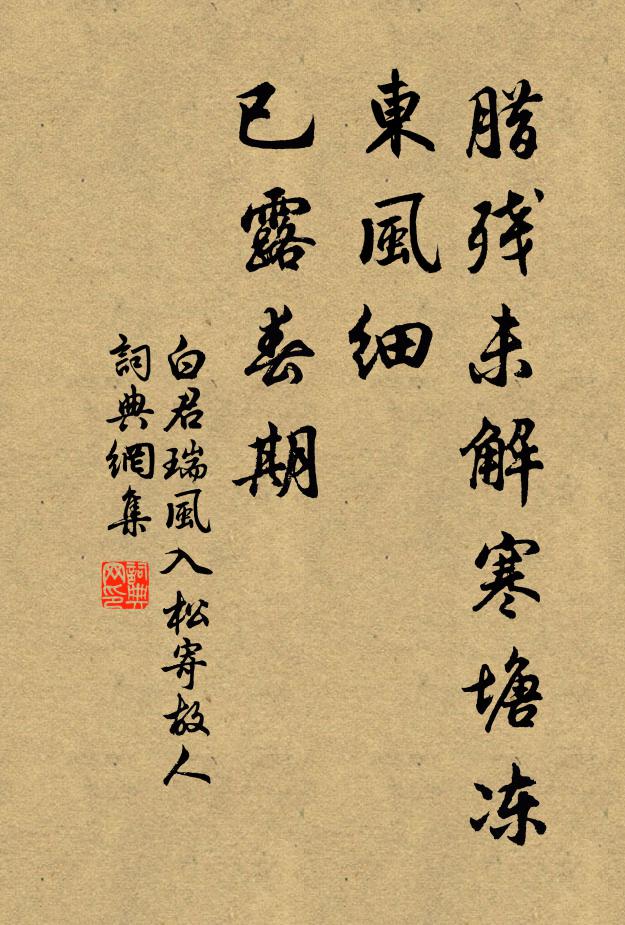 腊残未解寒塘冻
東風細
已露春期
白君瑞風入松寄故人
詞典網集
詞典网印